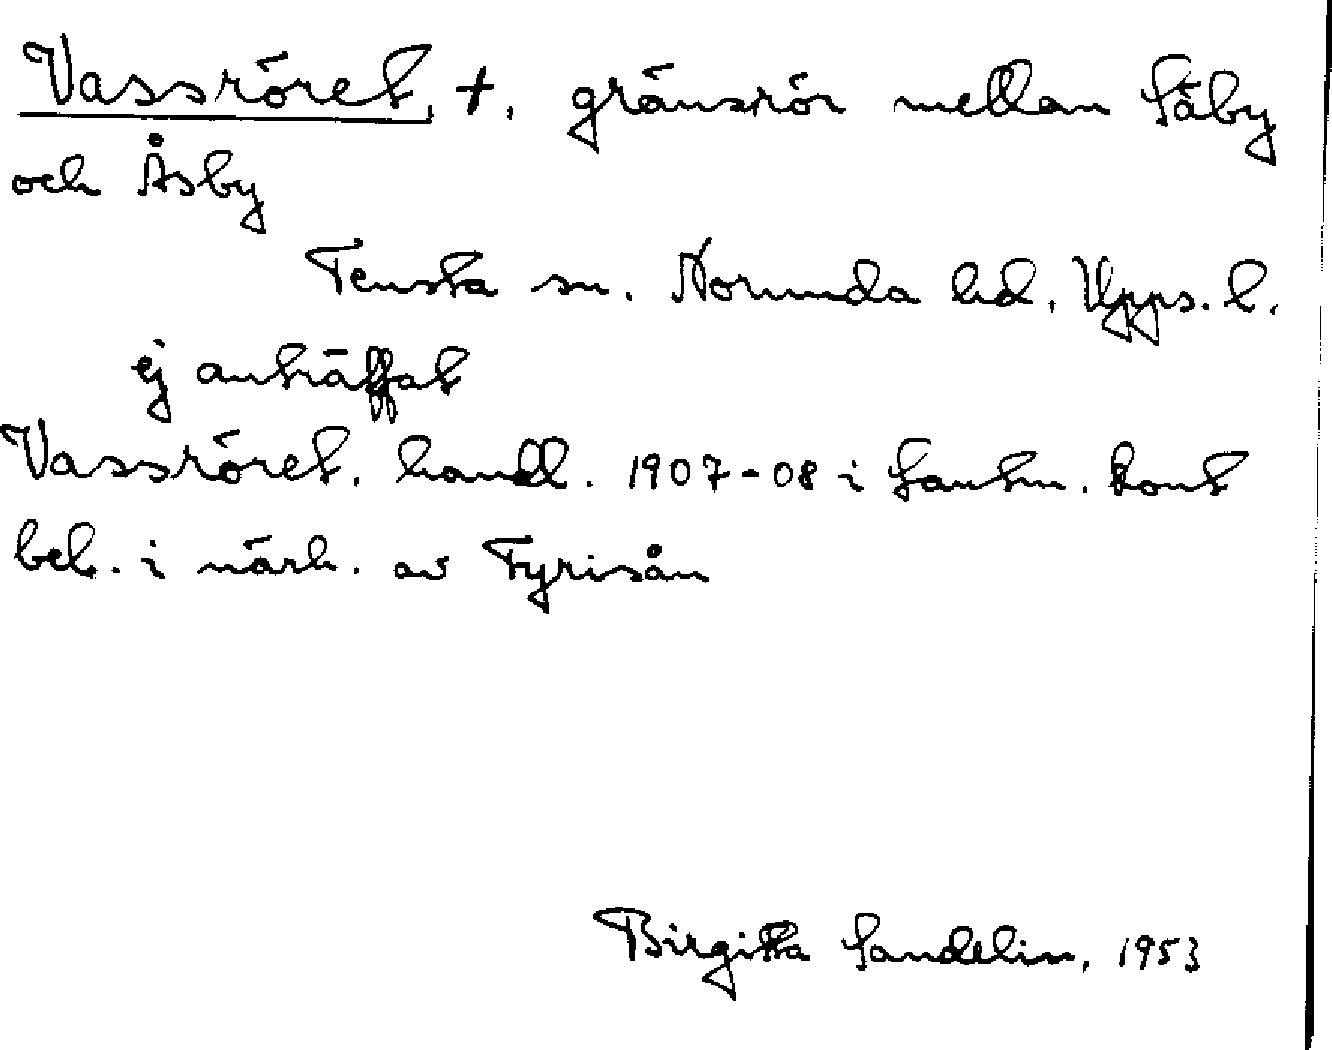 Vassröret, +, gränsrör mellan Säby
och Åsby
Tensta sn. Norunda hd. Upps. l.
ej anträffat
Vassröret. handl. 1907-08 i Lantm. kont
bel. i närh. av Fyrisån
Birgitta Sandelin, 1953